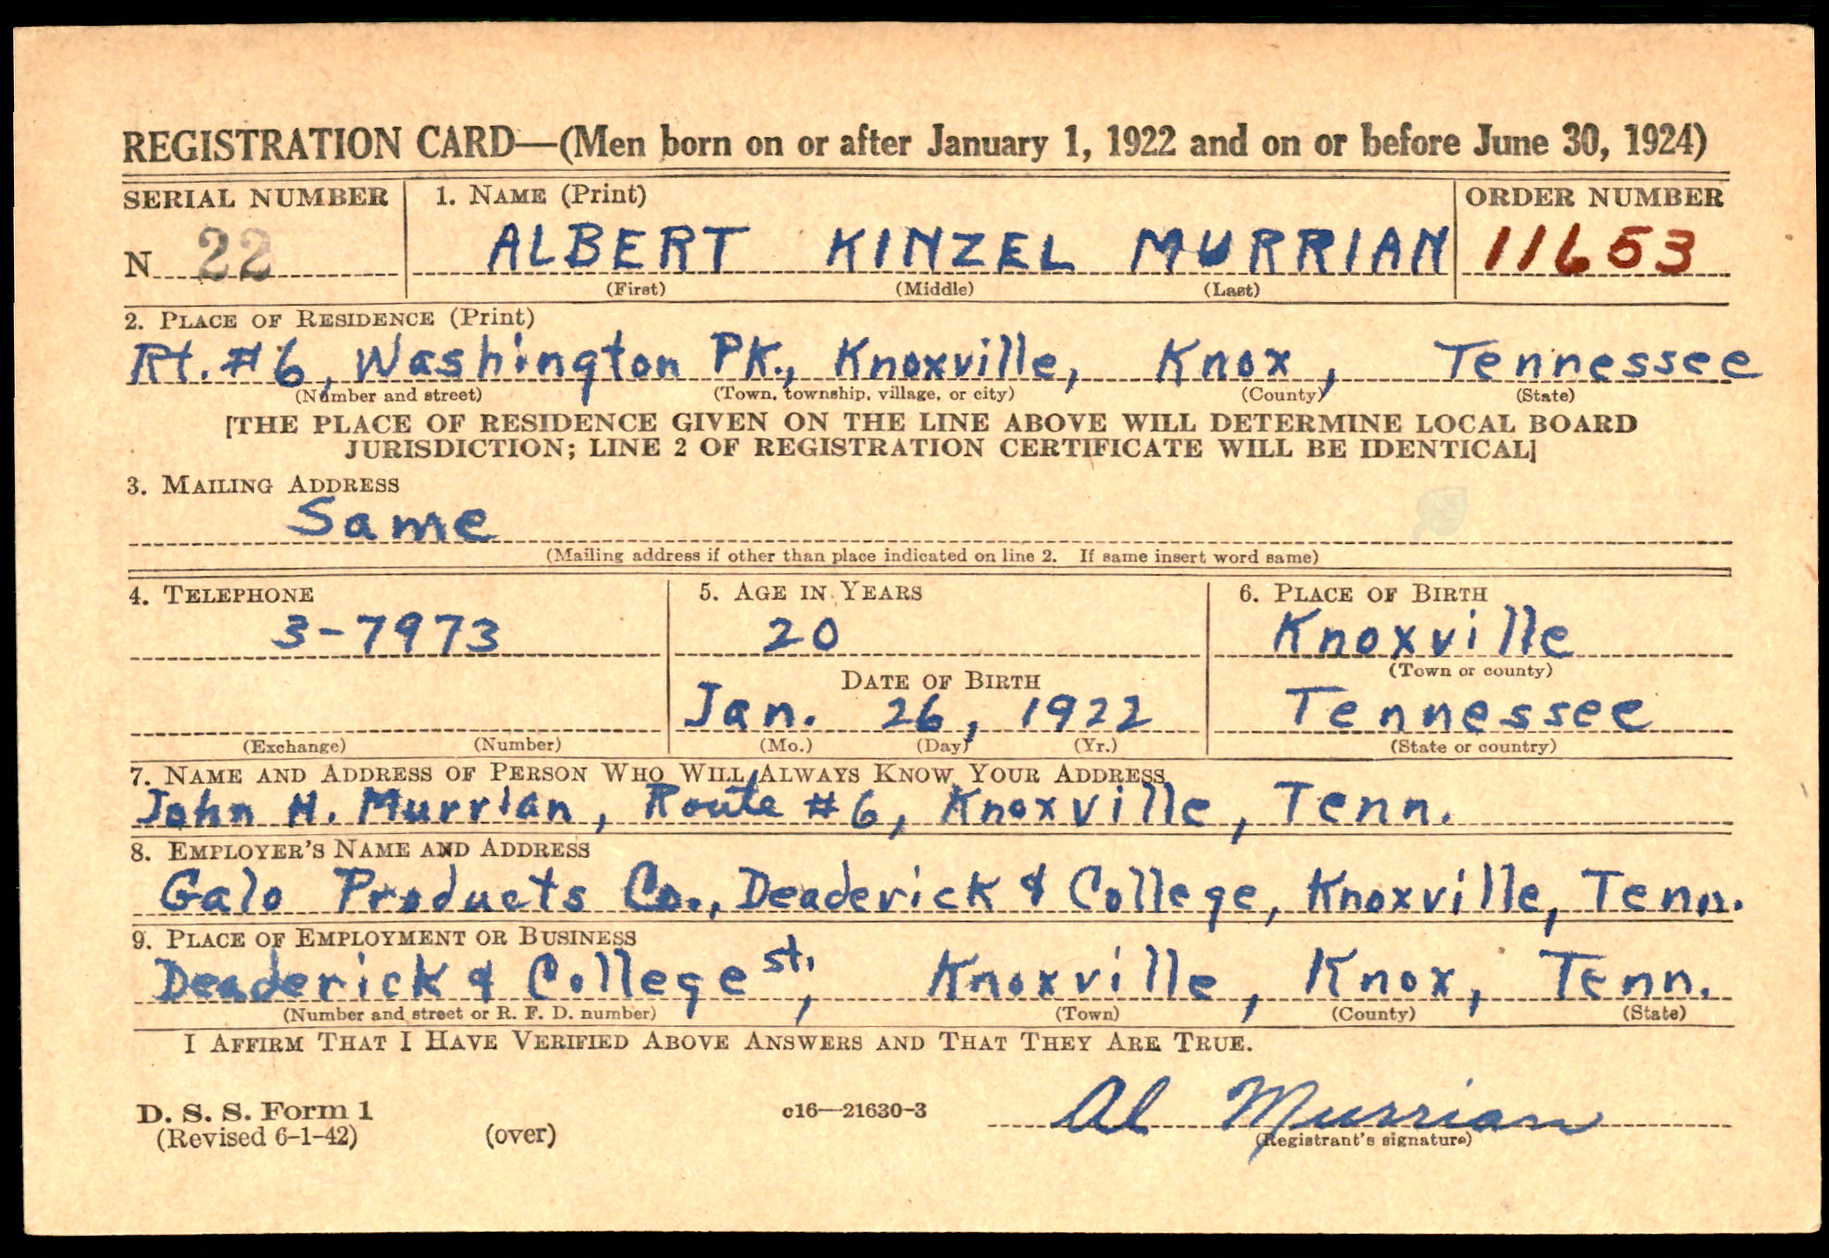 REGISTRATION CARD—(Men born on or after January 1, 1922 and on or before June 30, 1924)
SERIAL NUMBER
1. NAME (Print)
ORDER NUMBER
N 22
ALBERT KINZEL MURRIAN
11653
(First) (Middle) (Last)
2. PLACE OF RESIDENCE (Print)
Rt. #6, Washington PK., Knoxville, Knox, Tennessee
(Number and street) (Town, township, village, or city) (County) (State)
[THE PLACE OF RESIDENCE GIVEN ON THE LINE ABOVE WILL DETERMINE LOCAL BOARD
JURISDICTION; LINE 2 OF REGISTRATION CERTIFICATE WILL BE IDENTICAL]
3. MAILING ADDRESS
Same
(Mailing address if other than place indicated on line 2. If same insert word same)
4. TELEPHONE
5. AGE IN YEARS
6. PLACE OF BIRTH
3-7973
20
Knoxville
(Town or county)
DATE OF BIRTH
Jan. 26, 1922
Tennessee
(Exchange) (Number)
(Mo.) (Day) (Yr.)
(State or country)
7. NAME AND ADDRESS OF PERSON WHO WILL ALWAYS KNOW YOUR ADDRESS
John H. Murrian, Route #6, Knoxville, Tenn.
8. EMPLOYER'S NAME AND ADDRESS
Galo Products Co., Deaderick & College, Knoxville, Tenn.
9. PLACE OF EMPLOYMENT OR BUSINESS
Deaderick & College st., Knoxville, Knox, Tenn.
(Number and street or R. F. D. number) (Town) (County) (State)
I AFFIRM THAT I HAVE VERIFIED ABOVE ANSWERS AND THAT THEY ARE TRUE.
D. S. S. Form 1
(Revised 6-1-42)
(over)
c16—21630-3
Al Murrian
(Registrant's signature)